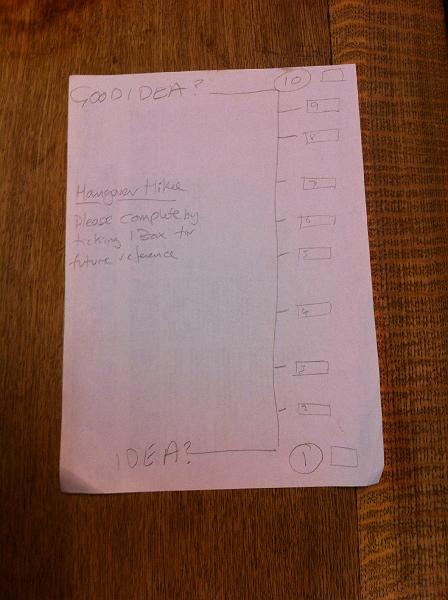 GOOD IDEA?
10
9
8
7
6
5
Hangover Mike
Please complete by
ticking 1 Box for
future reference
4
3
2
IDEA?
1